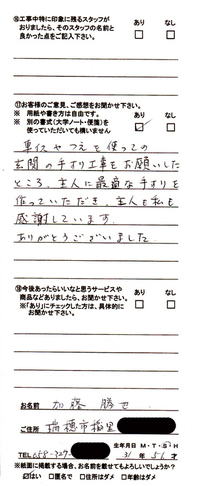 ⑯工事中特に印象に残るスタッフが
おりましたら、そのスタッフの名前と
良かった点をご記入下さい。
あり なし
⑰お客様のご意見、ご感想をお聞かせ下さい。
※ 用紙や書き方は自由です。
※ 別の書式(大学ノート・便箋)を
使っていただいても構いません
あり なし
車イスやつえを使っての
玄関の手すり工事をお願いした
ところ、主人に最適な手すりを
作っていただき、主人も私も
感謝しています。
ありがとうございました。
⑱今後あったらいいなと思うサービスや
商品などありましたら、お聞かせ下さい。
※「あり」にチェックした方は、具体的に
お聞かせ下さい
あり なし
お名前 加藤 勝
ご住所 瑞穂市
生年月日 M・T・S・H
TEL 058-327- 31年 51才
※紙面に掲載する場合、お名前を載せてもよろしいでしょうか?
はい 匿名で 住所はダメ 年齢はダメ